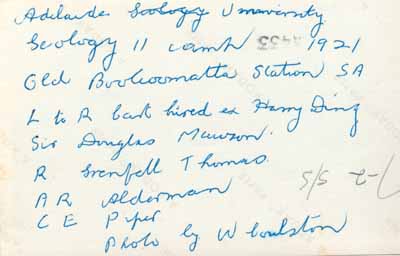 Adelaide Geology Unuiversity
Geology 11 camp 1921
Old Boolcoomatta Station SA
L to R Cart hired ex Harry Ding
Sir Douglas Mawson.
R Grenfell Thomas
A R Alderman
C E Piper
Photo by W Coulston